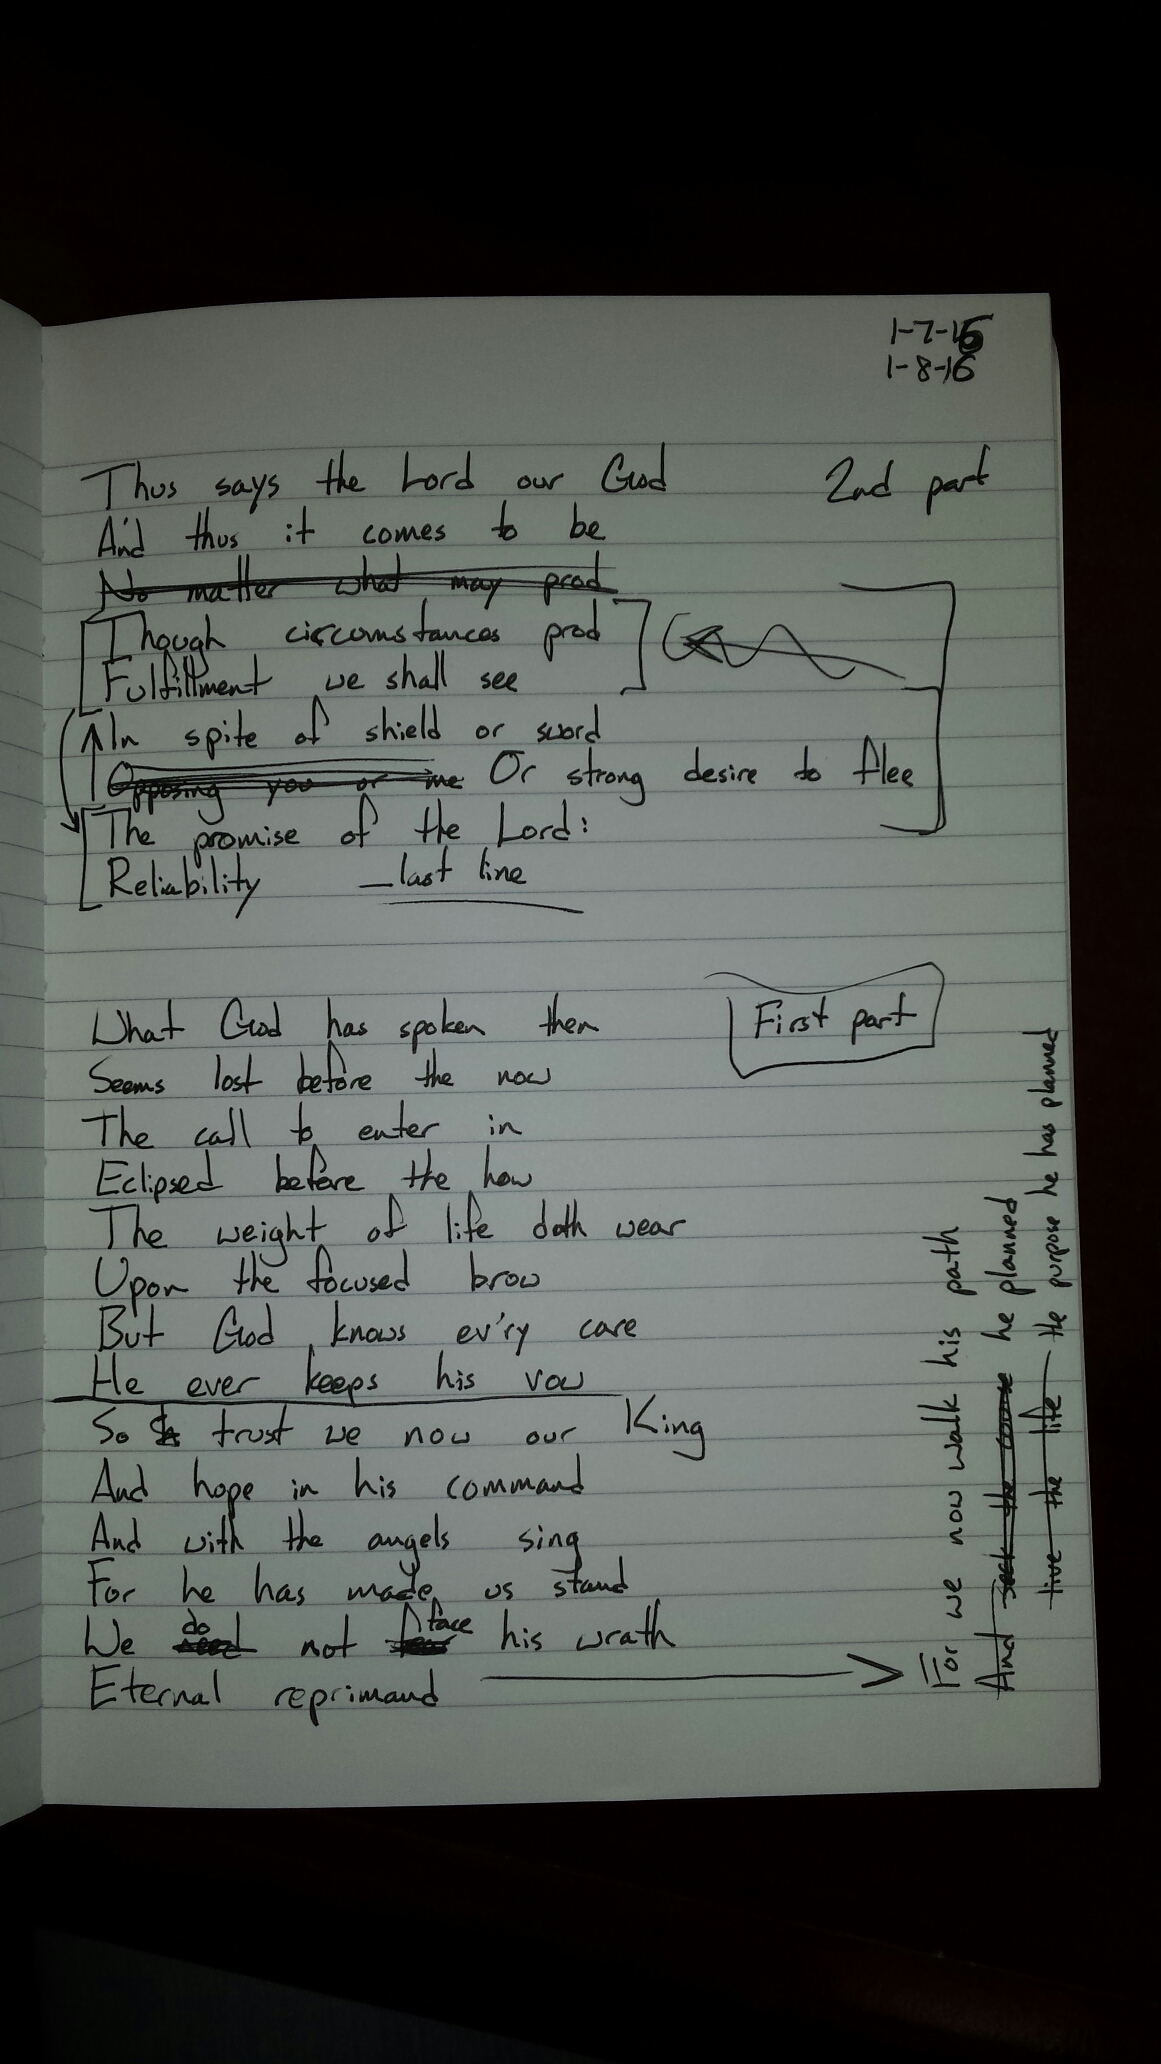 1-7-16
1-8-16
Thus says the Lord our God 2nd part
And thus it comes to be
No matter what may prod
Though circumstances prod
Fulfillment we shall see
In spite of shield or sword
Opposing you or me Or strong desire to flee
The promise of the Lord:
Reliability _last line
What God has spoken then First part
Seems lost before the now
The call to enter in
Eclipsed before the how
The weight of life doth wear
Upon the focused brow
But God knows ev'ry care
He ever keeps his vow
So trust we now our King
And hope in his command
And with the angels sing
For he has made us stand
We need do not fear face his wrath
Eternal reprimand
For we now walk his path
And seek the course he planned
live the life the purpose he has planned